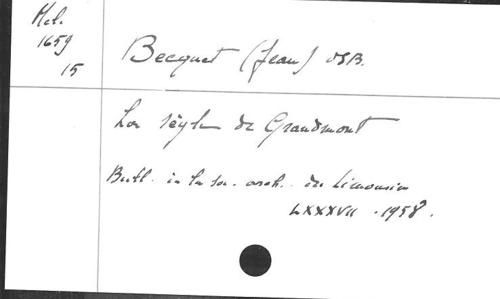 Mel.
1659
15
Becquet (Jean) OSB.
La règle de Grandmont
Bull. de la soc. arch. du Limousin
LXXXVII - 1958.